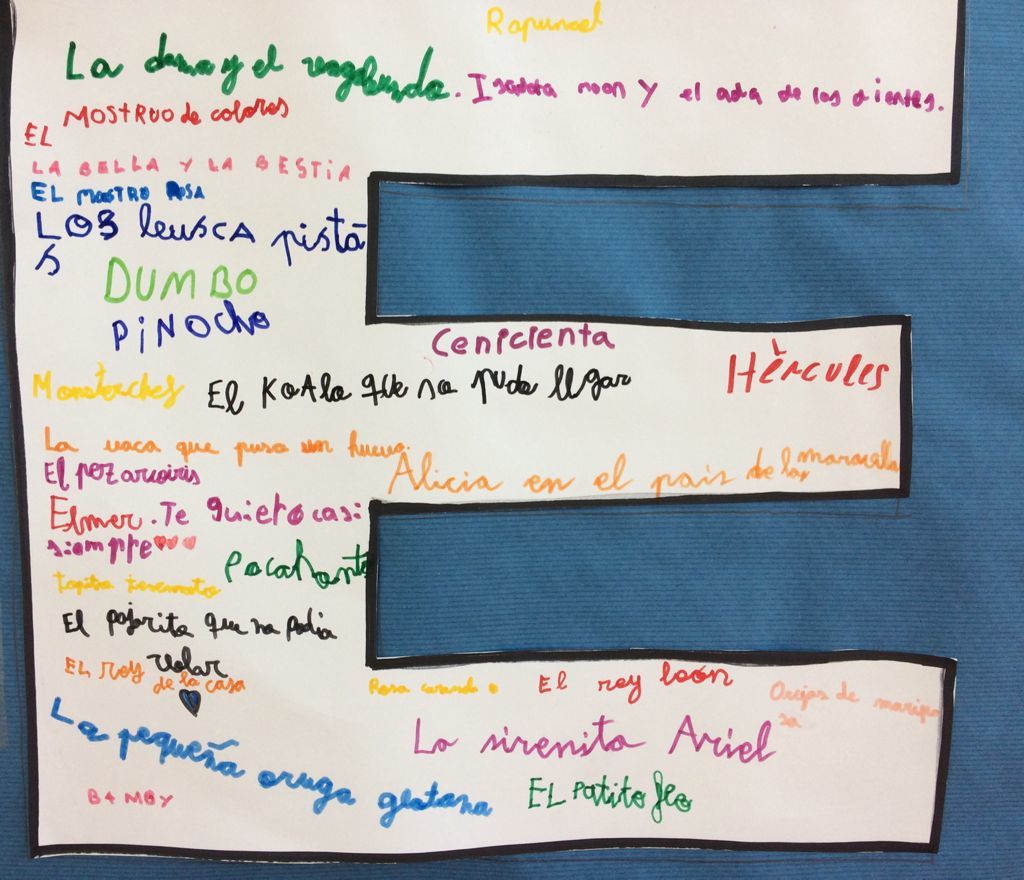 Rapunzel
La dama y el vagabundo.
Isadora moon y el ada de los dientes.
EL MOSTRUO de colores
LA BELLA Y LA BESTIA
EL MOSTRO ROSA
LOS leusca pistá
s
DUMBO
PiNOcho
Cenicienta
Hèrcules
Monsterchef
El KoAla que no pudo llgar
La vaca que puso un huevo.
El pez arcoiris
Alicia en el pais de las maravilla
Elmer. Te quieto casi
siempre
Pocahonta
El pojarito que no podia
volar
EL rey
de la casa
Rosa
El rey león
Orejas de maripo
sa
La pequeña oruga glotona
La sirenita Ariel
BAMBY
EL Patito feo